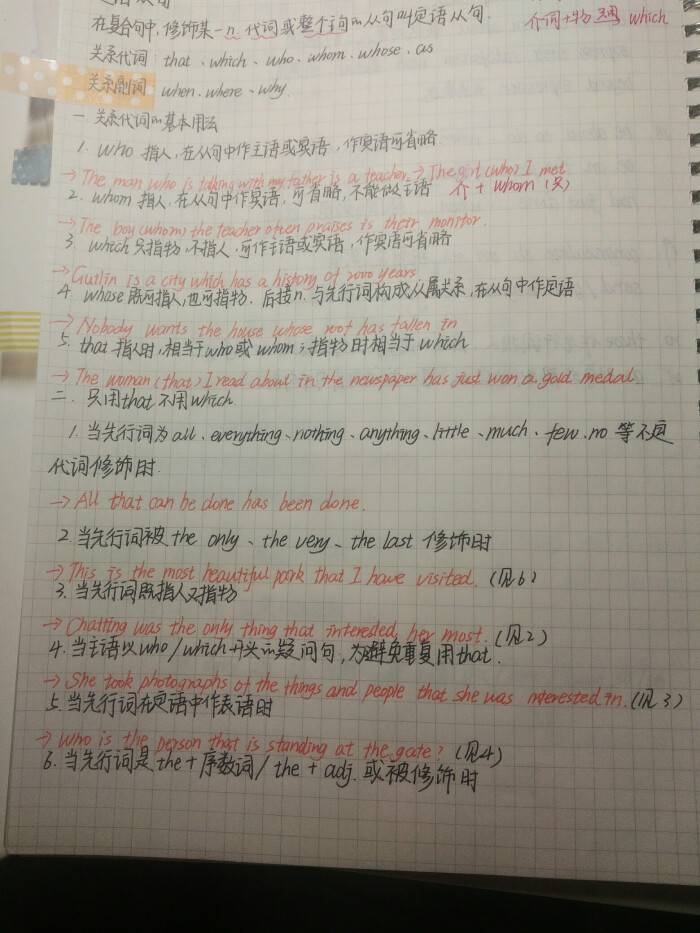 在复合句中,修饰某一n.代词或整个主句的从句叫定语从句. 介词+物 which
关系代词: that、which、who、whom、whose、as
关系副词: when、where、why
一 关系代词的基本用法
1. who 指人,在从句中作主语或宾语,作宾语可省略
→ The man who is talking with my father is a teacher. → The girl (who) I met
2. whom 指人,在从句中作宾语,可省略,不能做主语 介 + whom (只)
→ The boy (whom) the teacher often praises is their monitor.
3. which 只指物,不指人.可作主语或宾语,作宾语可省略
→ Guilin is a city which has a history of 2000 years
4. whose 既可指人,也可指物.后接n.与先行词构成从属关系,在从句中作定语
→ Nobody wants the house whose roof has fallen in
5. that 指人时,相当于who或whom;指物时相当于which
→ The woman (that) I read about in the newspaper has just won a gold medal
二. 只用that不用which
1. 当先行词为all、everything、nothing、anything、little、much、few、no 等不定
代词修饰时.
→ All that can be done has been done.
2. 当先行词被 the only、the very、the last 修饰时
→ This is the most beautiful park that I have visited. (见6)
3. 当先行词既指人又指物
→ Chatting was the only thing that interested her most. (见2)
4. 当主语以who/which开头的疑问句,为避免重复用that.
→ She took photographs of the things and people that she was interested in. (见3)
5. 当先行词在定语中作表语时
→ Who is the person that is standing at the gate? (见4)
6. 当先行词是the+序数词/the+adj.或被修饰时